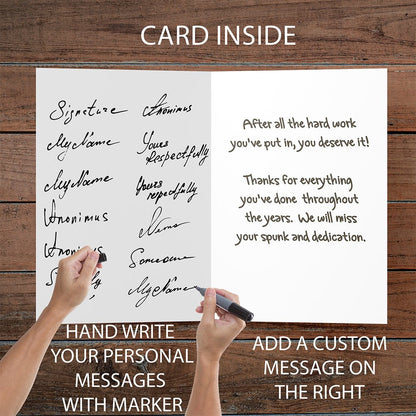 CARD INSIDE
Signature
MyName
MyName
Anonimus
Anonimus
Anonimus
Yours
Respectfully
Yours
respectfully
Nemo
Someone
MyName
After all the hard work
you've put in, you deserve it!
Thanks for everything
you've done throughout
the years. We will miss
your spunk and dedication.
HAND WRITE
YOUR PERSONAL
MESSAGES
WITH MARKER
ADD A CUSTOM
MESSAGE ON
THE RIGHT